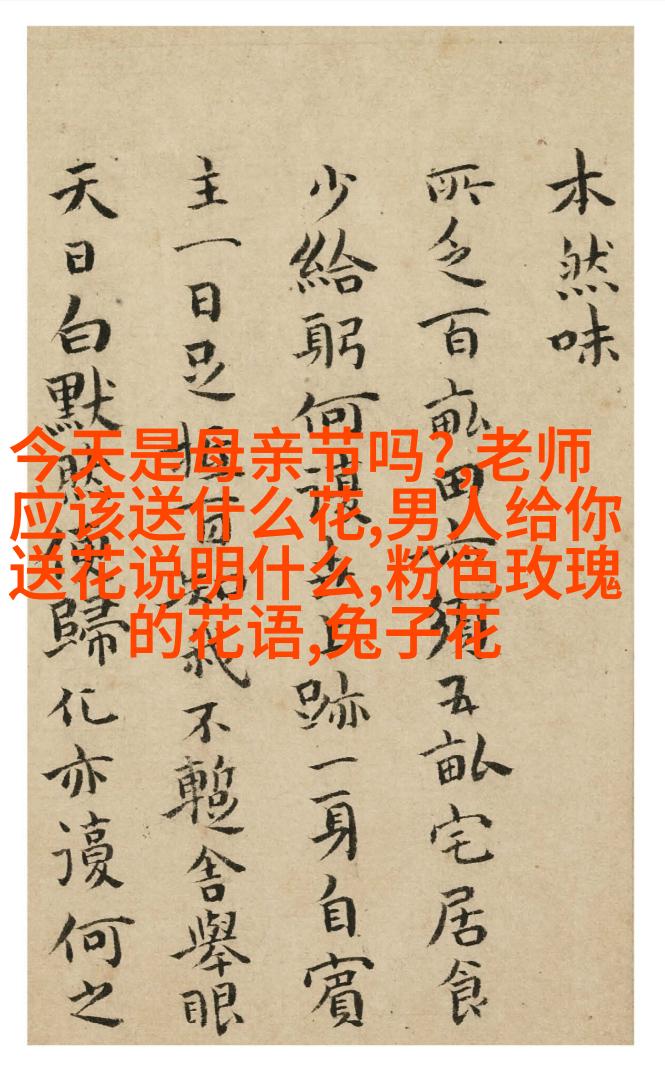 本然味
所乏百畝田亦須五畝宅居食
少給躬何讓跡一身自賓
主一日足百知我不暫舍舉眼
天日白默歸化亦謾何之
今天是母亲节吗?,老师
应该送什么花,男人给你
送花说明什么,粉色玫瑰
的花语,兔子花